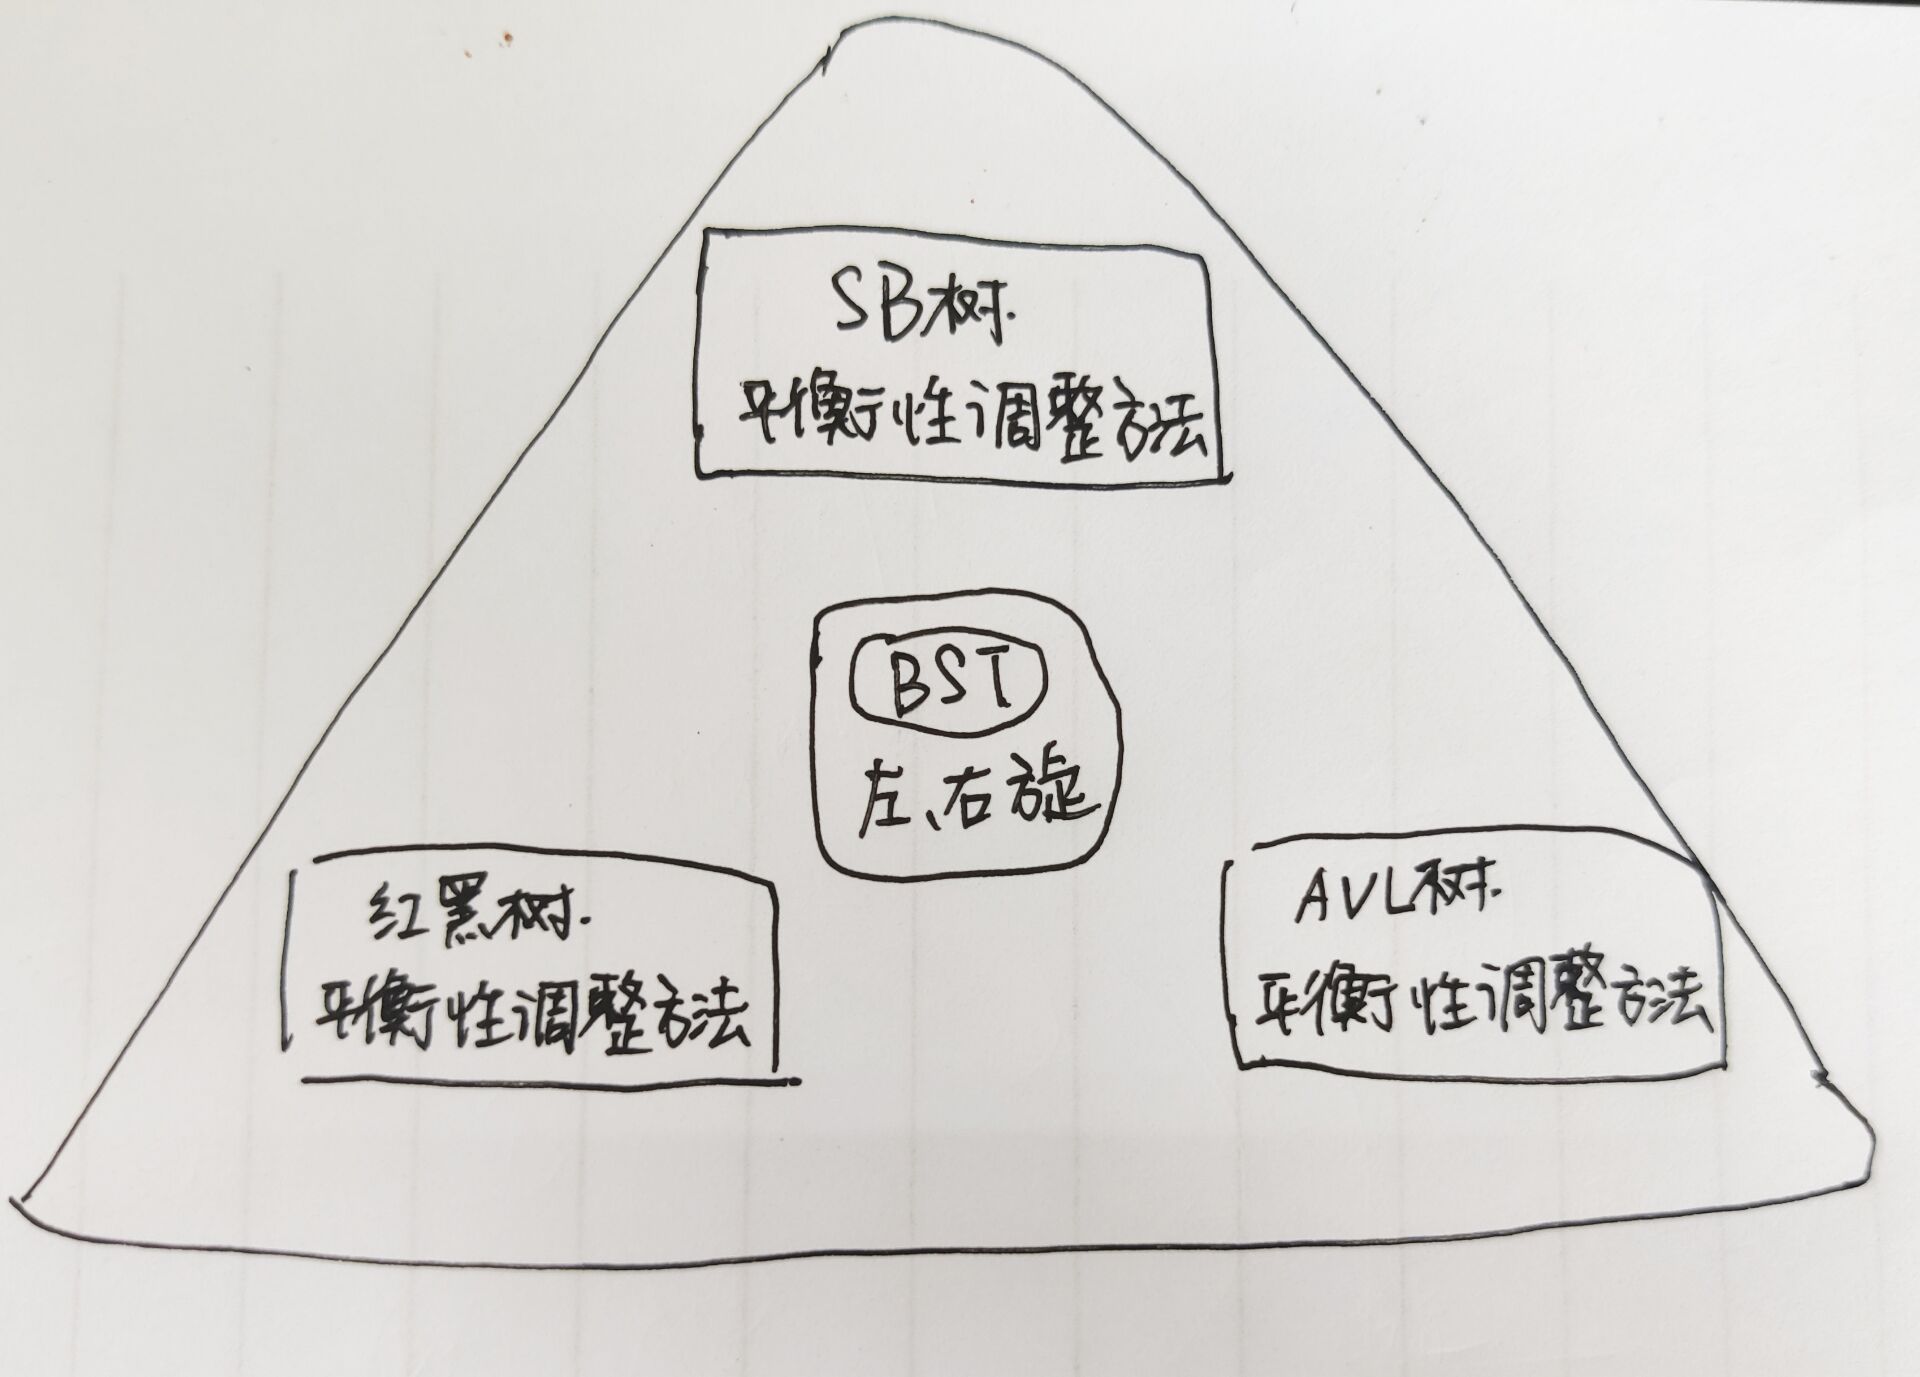 SB树.
平衡性调整方法
BST
左、右旋
红黑树.
平衡性调整方法
AVL树.
平衡性调整方法